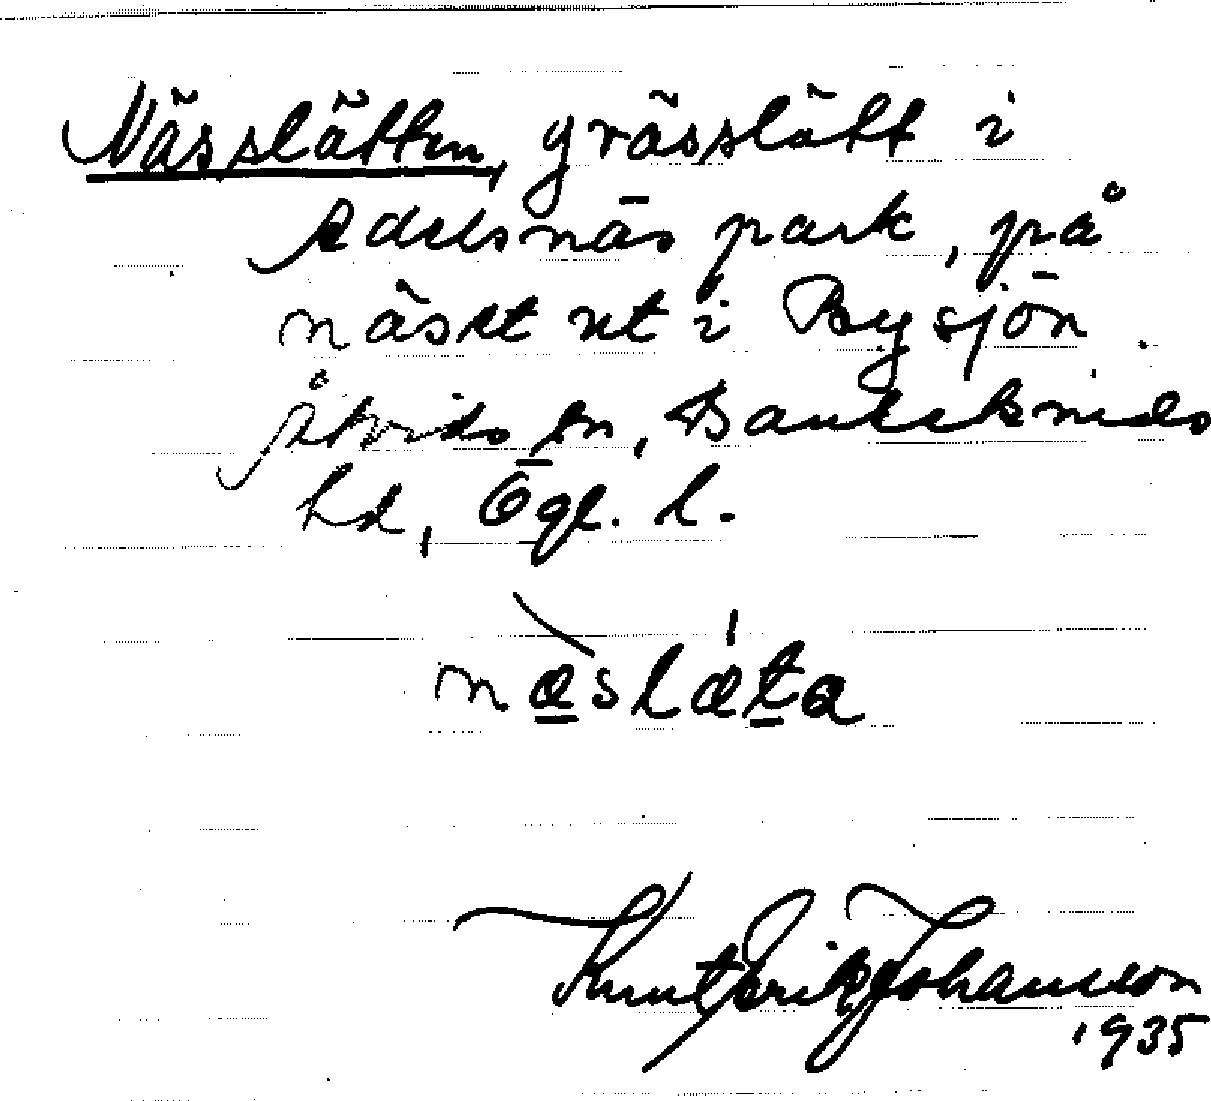 Nässlätten, grässlätt i
Adelsnäs park, på
näset ut i Bysjön
Åtvids sn, Bankekinds
hd, Ögl. l.
næslæta
Knut Erik Johansson
1935